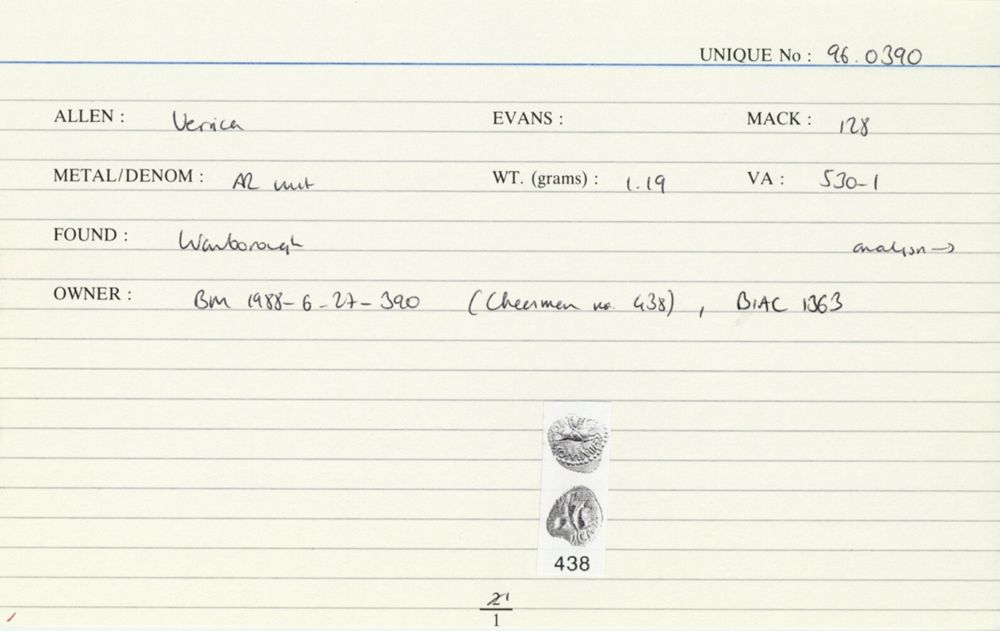 UNIQUE No : 96.0390
ALLEN : Verica EVANS : MACK : 128
METAL/DENOM : AR unit WT. (grams) : 1.19 VA : 530-1
FOUND : Wanborough analysn →
OWNER : BM 1988-6-27-390 (Cheesman no. 438), BIAC 1363
438
21
1